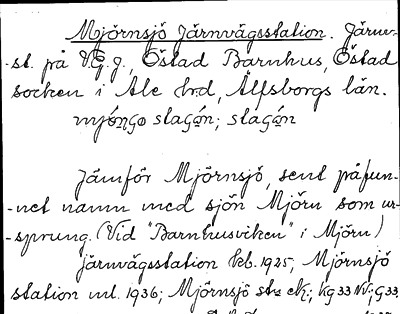 Mjörnsjö Järnvägsstation. Järnv-
-st. på V.G.J., Östad Barnhus, Östad
socken i Ale hrd, Älfsborgs län.
slagón; slagón
Jämför Mjörnsjö, sent påfun-
-net namn med sjön Mjörn som ur-
-sprung. (Vid "Barnhusviken" i Mjörn)
järnvägsstation 1925; Mjörnsjö
station ml. 1936; Mjörnsjö kg 33